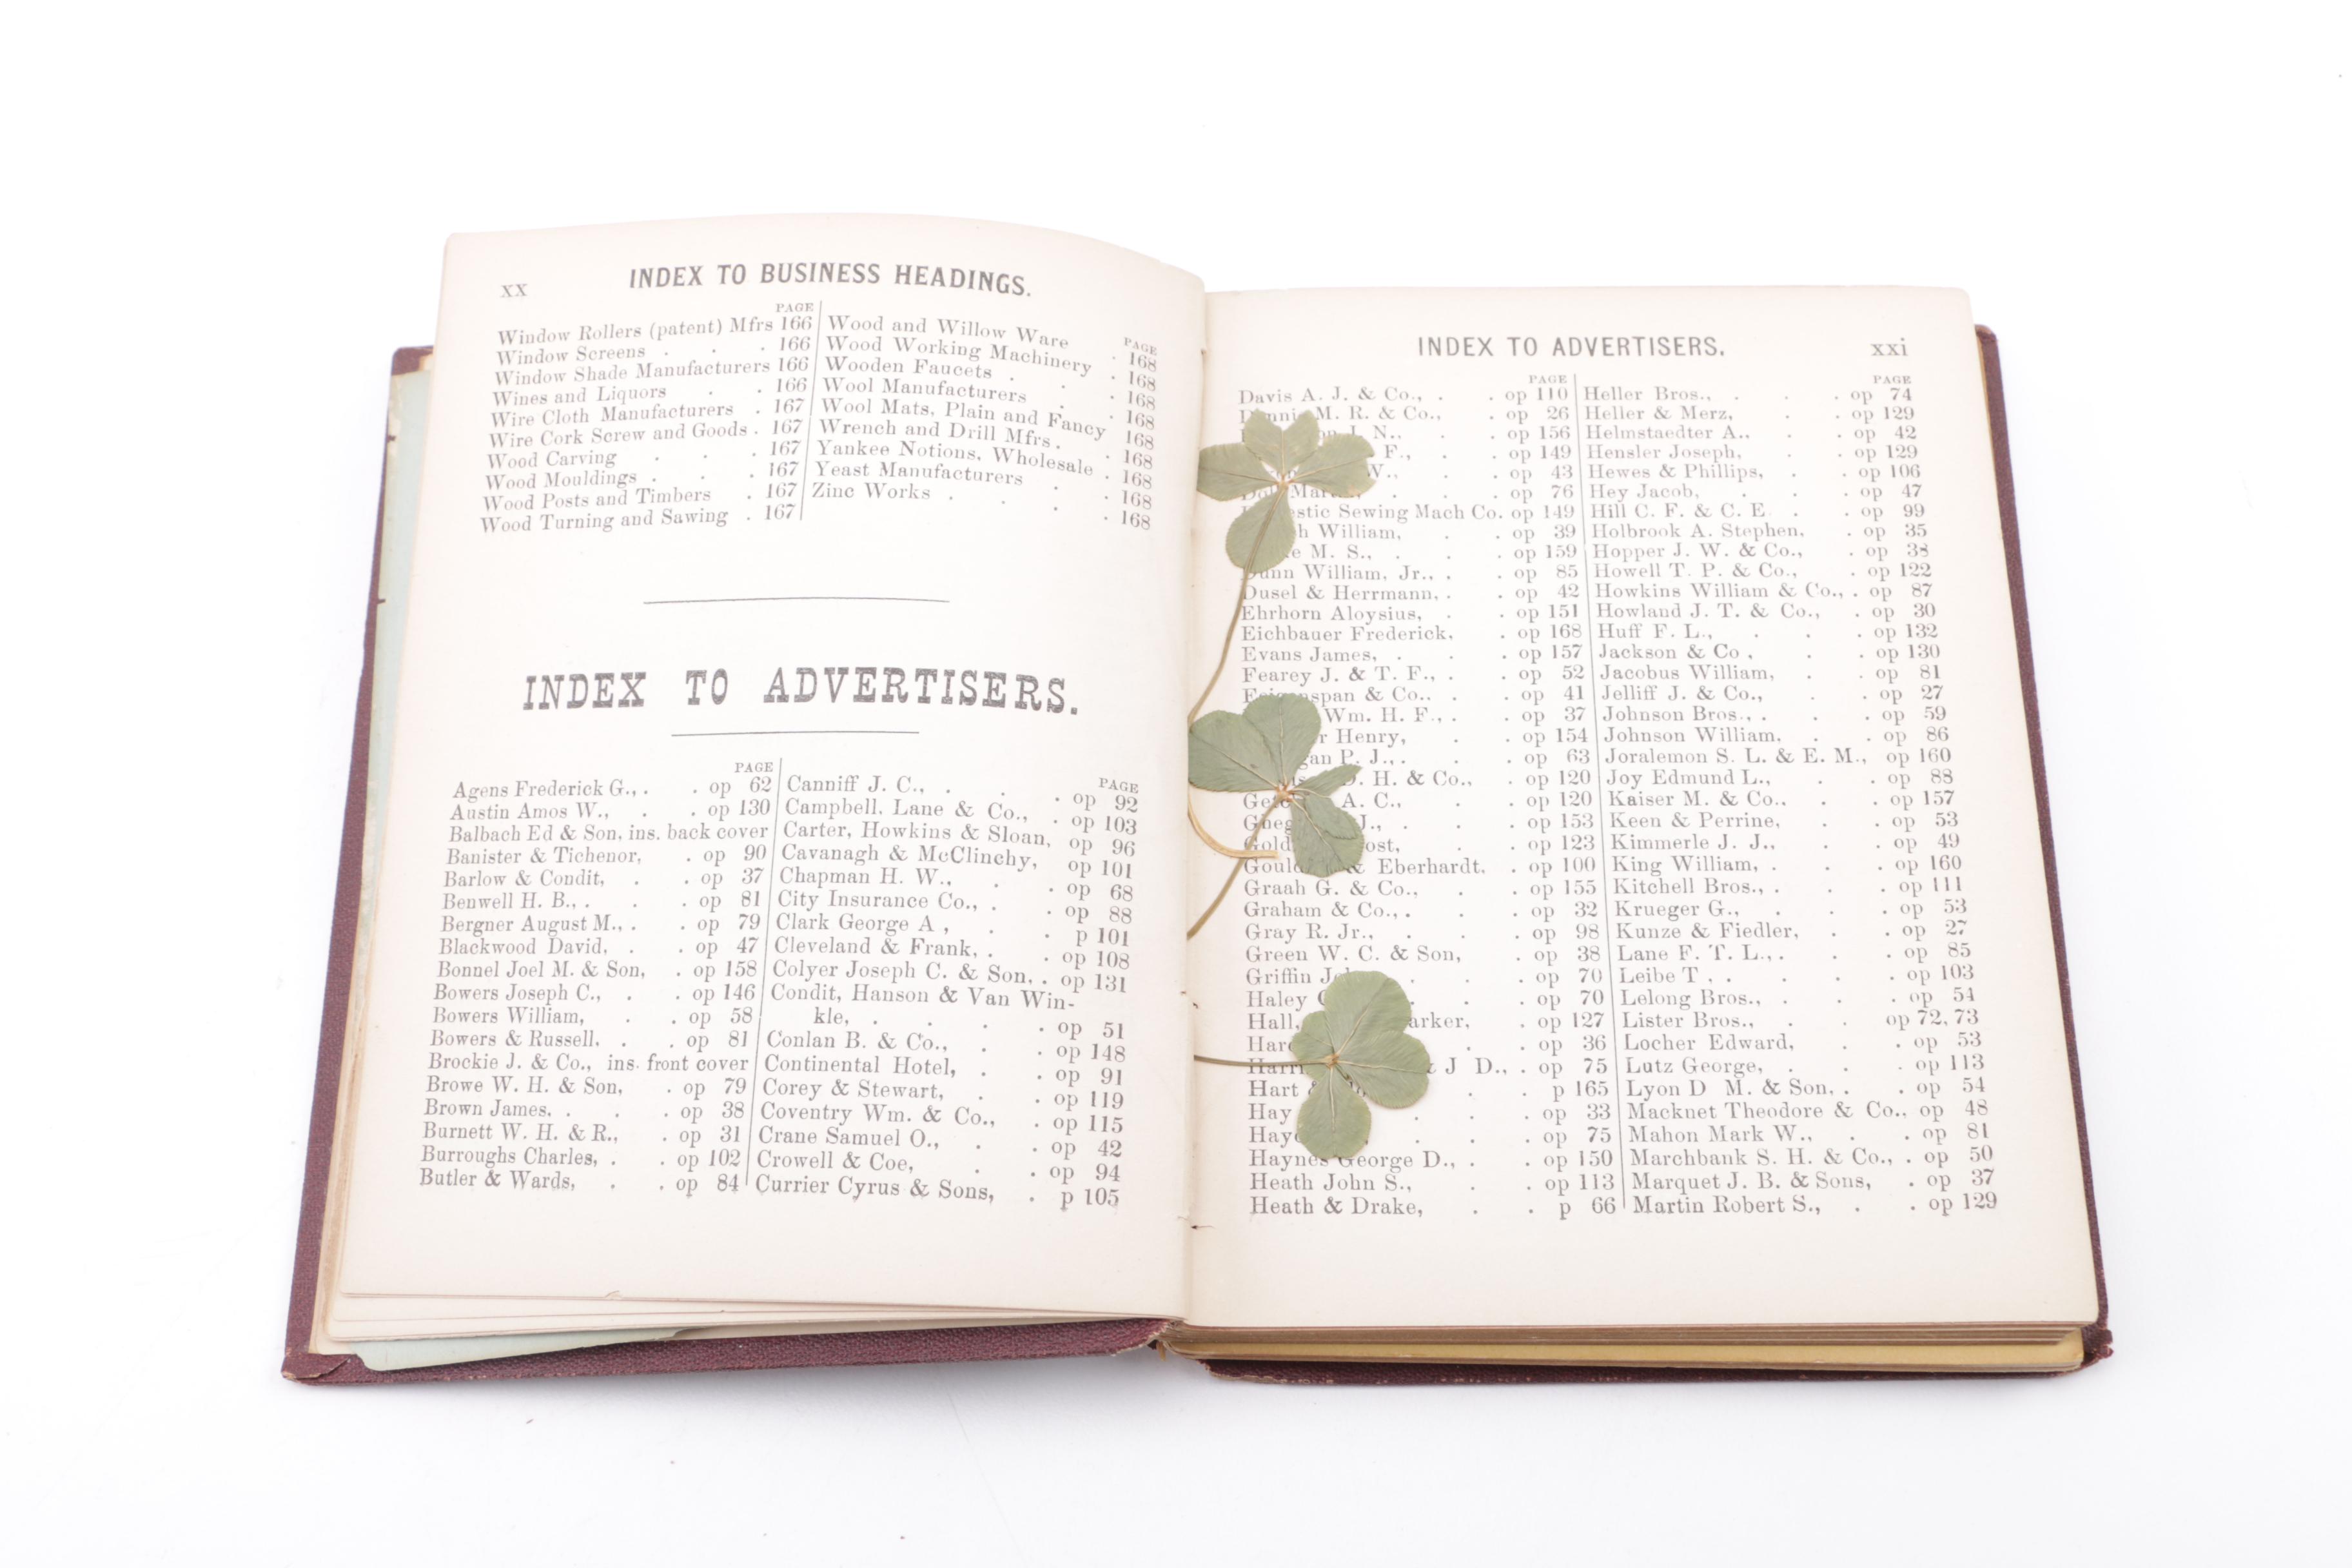 xx
INDEX TO BUSINESS HEADINGS.
PAGE
Window Rollers (patent) Mfrs 166
Window Screens . . . 166
Window Shade Manufacturers 166
Wines and Liquors . . 166
Wire Cloth Manufacturers . 167
Wire Cork Screw and Goods . 167
Wood Carving . . . 167
Wood Mouldings . . . 167
Wood Posts and Timbers . 167
Wood Turning and Sawing . 167
PAGE
Wood and Willow Ware . 168
Wood Working Machinery . 168
Wooden Faucets . . . 168
Wool Manufacturers . . 168
Wool Mats, Plain and Fancy 168
Wrench and Drill Mfrs. . 168
Yankee Notions, Wholesale . 168
Yeast Manufacturers . . 168
Zinc Works . . . . 168
INDEX TO ADVERTISERS.
PAGE
Agens Frederick G., . . op 62
Austin Amos W., . . op 130
Balbach Ed & Son, ins. back cover
Banister & Tichenor, . op 90
Barlow & Condit, . . op 37
Benwell H. B., . . . op 81
Bergner August M., . . op 79
Blackwood David, . . op 47
Bonnel Joel M. & Son, . op 158
Bowers Joseph C., . . op 146
Bowers William, . . op 58
Bowers & Russell, . . op 81
Brockie J. & Co., ins. front cover
Browe W. H. & Son, . op 79
Brown James, . . . op 38
Burnett W. H. & R., . op 31
Burroughs Charles, . . op 102
Butler & Wards, . . op 84
PAGE
Canniff J. C., . . . op 92
Campbell, Lane & Co., . op 103
Carter, Howkins & Sloan, op 96
Cavanagh & McClinchy, op 101
Chapman H. W., . . op 68
City Insurance Co., . . op 88
Clark George A , . . p 101
Cleveland & Frank, . . op 108
Colyer Joseph C. & Son, . op 131
Condit, Hanson & Van Win-
kle, . . . . op 51
Conlan B. & Co., . . op 148
Continental Hotel, . . op 91
Corey & Stewart, . . op 119
Coventry Wm. & Co., . op 115
Crane Samuel O., . . op 42
Crowell & Coe, . . op 94
Currier Cyrus & Sons, . p 105
INDEX TO ADVERTISERS.
xxi
PAGE
Davis A. J. & Co., . . op 110
M. R. & Co., . op 26
J. N., . . op 156
F., . . op 149
W., . . op 43
. . op 76
Sewing Mach Co. op 149
William, . . op 39
M. S., . . . op 159
Dunn William, Jr., . . op 85
Dusel & Herrmann, . . op 42
Ehrhorn Aloysius, . . op 151
Eichbauer Frederick, . op 168
Evans James, . . . op 157
Fearey J. & T. F., . . op 52
& Co., . . op 41
Wm. H. F., . . op 37
Henry, . . op 154
P. J., . . . op 63
H. & Co., . op 120
A. C., . . op 120
J., . . . op 153
. . op 123
& Eberhardt, . op 100
Graah G. & Co., . . op 155
Graham & Co., . . . op 32
Gray R. Jr., . . . op 98
Green W. C. & Son, . op 38
Griffin . . . op 70
Haley . . . op 70
Hall, . op 127
. . op 36
& J D., . op 75
Hart & . . p 165
. . . op 33
. . . op 75
Haynes George D., . . op 150
Heath John S., . . op 113
Heath & Drake, . . p 66
PAGE
Heller Bros., . . . op 74
Heller & Merz, . . op 129
Helmstaedter A., . . op 42
Hensler Joseph, . . op 129
Hewes & Phillips, . . op 106
Hey Jacob, . . . op 47
Hill C. F. & C. E. . . op 99
Holbrook A. Stephen, . op 35
Hopper J. W. & Co., . op 38
Howell T. P. & Co., . op 122
Howkins William & Co., . op 87
Howland J. T. & Co., . op 30
Huff F. L., . . . op 132
Jackson & Co , . . op 130
Jacobus William, . . op 81
Jelliff J. & Co., . . op 27
Johnson Bros., . . . op 59
Johnson William, . . op 86
Joralemon S. L. & E. M., op 160
Joy Edmund L., . . op 88
Kaiser M. & Co., . . op 157
Keen & Perrine, . . op 53
Kimmerle J. J., . . op 49
King William, . . . op 160
Kitchell Bros., . . . op 111
Krueger G., . . . op 53
Kunze & Fiedler, . . op 27
Lane F. T. L., . . . op 85
Leibe T , . . . op 103
Lelong Bros., . . . op 54
Lister Bros., . . op 72, 73
Locher Edward, . . op 53
Lutz George, . . . op 113
Lyon D M. & Son, . . op 54
Macknet Theodore & Co., op 48
Mahon Mark W., . . op 81
Marchbank S. H. & Co., . op 50
Marquet J. B. & Sons, . op 37
Martin Robert S., . . op 129